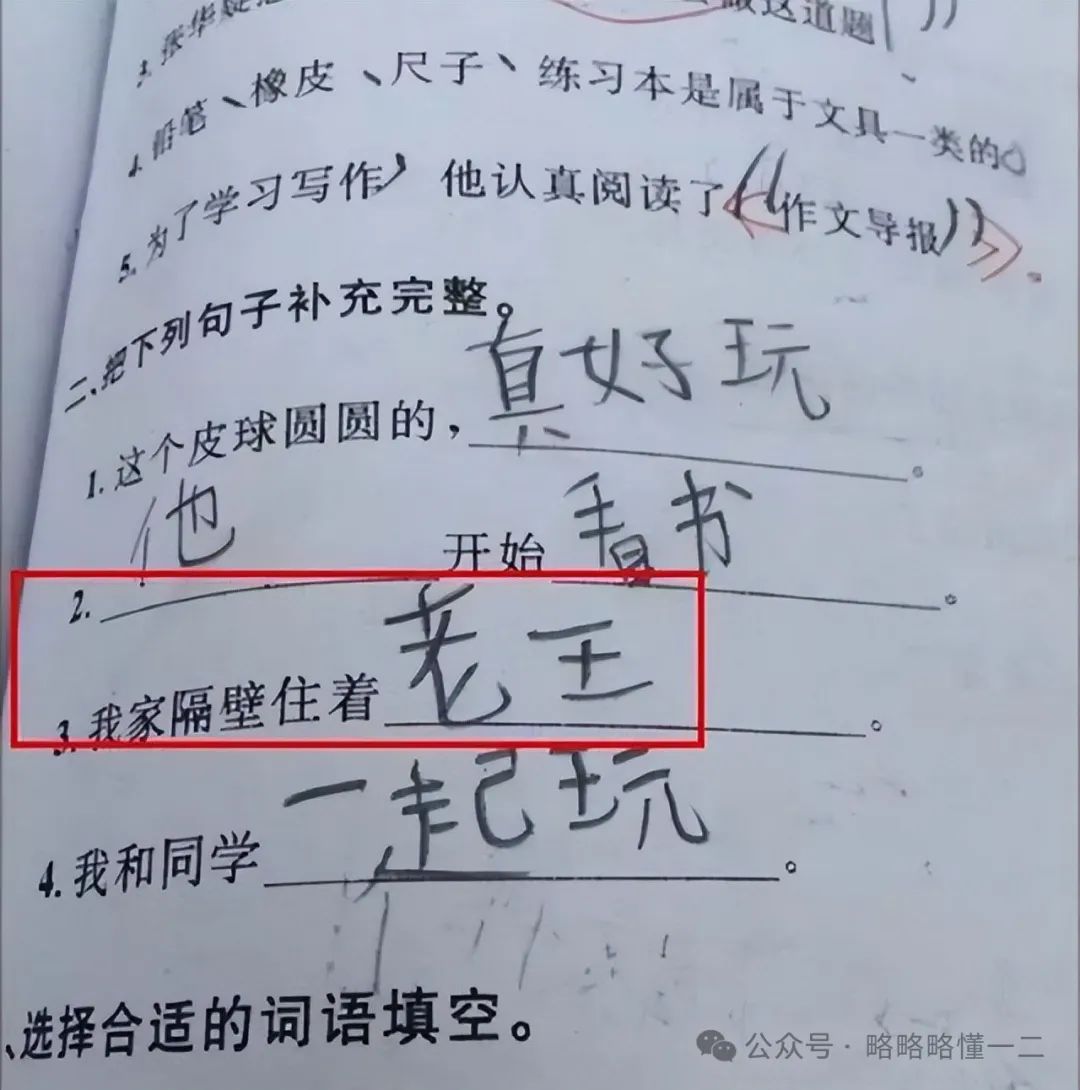 3. 张华 做这道题
4. 铅笔、橡皮、尺子、练习本是属于文具一类的。
5. 为了学习写作,他认真阅读了《作文导报》。
二、把下列句子补充完整。
1. 这个皮球圆圆的,真好玩。
2. 他开始看书。
3. 我家隔壁住着老王。
4. 我和同学一起玩。
、选择合适的词语填空。
公众号·略略略懂一二